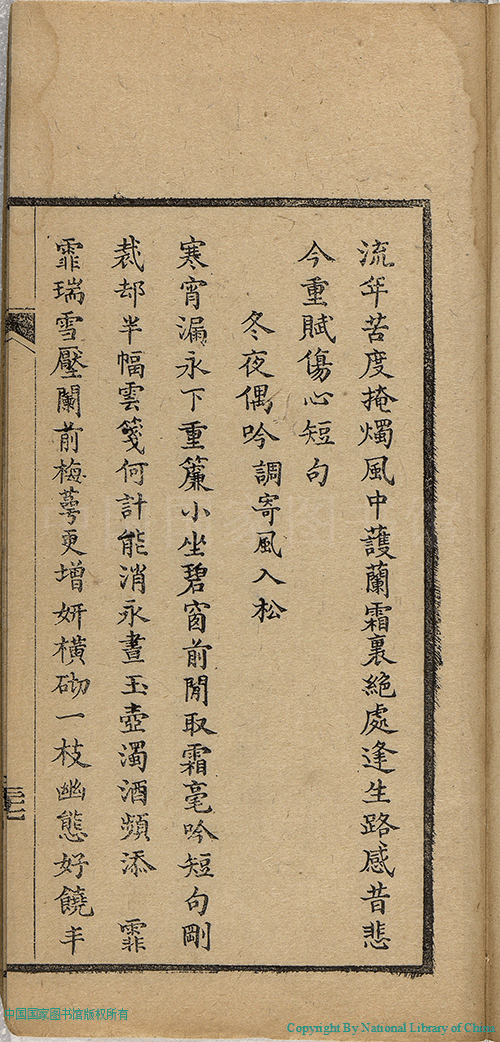 流年苦度掩燭風中護蘭霜裏絕處逢生路感昔悲
今重賦傷心短句
冬夜偶吟調寄風入松
寒宵漏永下重簾小坐碧窗前閒取霜毫吟短句剛
裁却半幅雲箋何計能消永晝玉壺濁酒頻添　霏
霏瑞雪壓闌前梅萼更增妍橫砌一枝幽態好饒丰
三十七
中国国家图书馆版权所有
Copyright By National Library of China